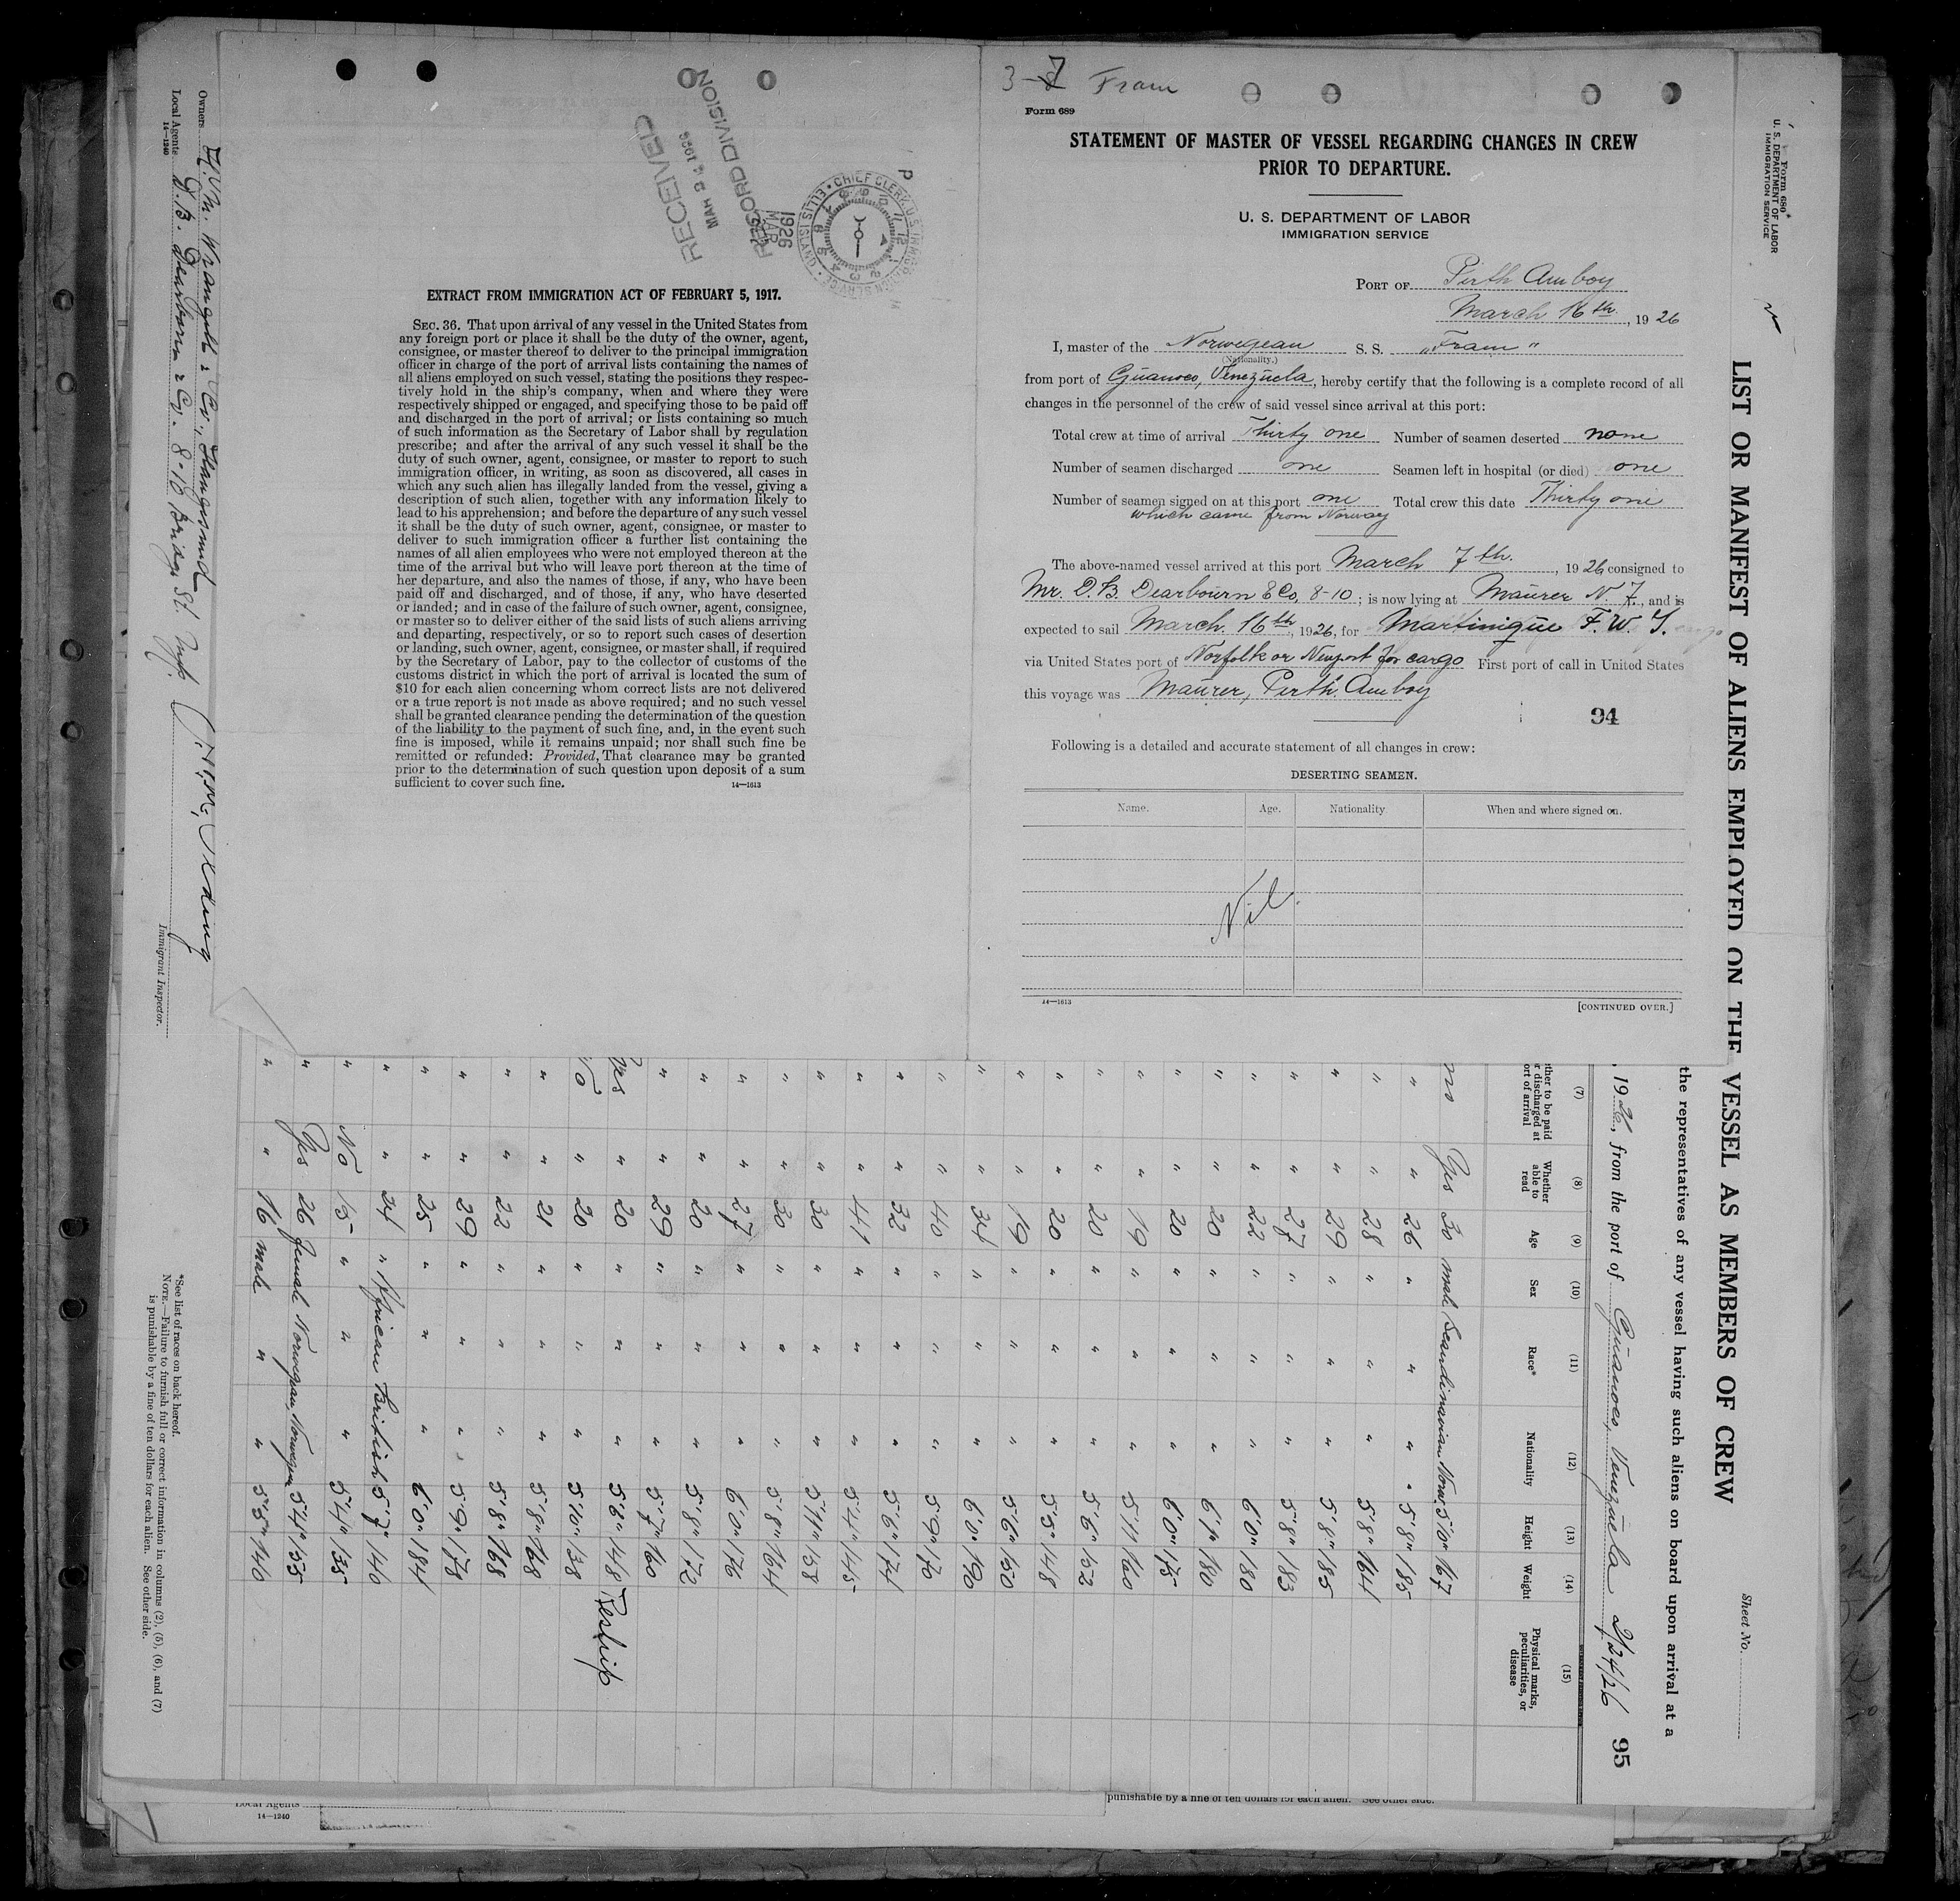 3-7 Fram
Form 689
STATEMENT OF MASTER OF VESSEL REGARDING CHANGES IN CREW
PRIOR TO DEPARTURE.
U. S. DEPARTMENT OF LABOR
IMMIGRATION SERVICE
PORT OF Perth Amboy
March 16th, 1926
I, master of the Norwegean S. S. "Fram"
(Nationality.)
from port of Guanoco, Venezuela, hereby certify that the following is a complete record of all
changes in the personnel of the crew of said vessel since arrival at this port:
Total crew at time of arrival Thirty one Number of seamen deserted none
Number of seamen discharged one Seamen left in hospital (or died) one
Number of seamen signed on at this port one Total crew this date Thirty one
which came from Norway
The above-named vessel arrived at this port March 7th., 1926 consigned to
Mr. D. B. Dearbourn & Co, 8-10; is now lying at Maurer N. J., and is
expected to sail March. 16th, 1926, for Martinique F. W. I.
via United States port of Norfolk or Newport for cargo First port of call in United States
this voyage was Maurer, Perth Amboy
94
Following is a detailed and accurate statement of all changes in crew:
DESERTING SEAMEN.
Name. Age. Nationality When and where signed on.
Nil.
14—1613 [CONTINUED OVER.]
RECEIVED
MAR 24 1926
RECORD DIVISION
1926
MAR
CHIEF CLERK U. S. IMMIGRATION SERVICE
ELLIS ISLAND
EXTRACT FROM IMMIGRATION ACT OF FEBRUARY 5, 1917.
SEC. 36. That upon arrival of any vessel in the United States from
any foreign port or place it shall be the duty of the owner, agent,
consignee, or master thereof to deliver to the principal immigration
officer in charge of the port of arrival lists containing the names of
all aliens employed on such vessel, stating the positions they respec-
tively hold in the ship's company, when and where they were
respectively shipped or engaged, and specifying those to be paid off
and discharged in the port of arrival; or lists containing so much
of such information as the Secretary of Labor shall by regulation
prescribe; and after the arrival of any such vessel it shall be the
duty of such owner, agent, consignee, or master to report to such
immigration officer, in writing, as soon as discovered, all cases in
which any such alien has illegally landed from the vessel, giving a
description of such alien, together with any information likely to
lead to his apprehension; and before the departure of any such vessel
it shall be the duty of such owner, agent, consignee, or master to
deliver to such immigration officer a further list containing the
names of all alien employees who were not employed thereon at the
time of the arrival but who will leave port thereon at the time of
her departure, and also the names of those, if any, who have been
paid off and discharged, and of those, if any, who have deserted
or landed; and in case of the failure of such owner, agent, consignee,
or master so to deliver either of the said lists of such aliens arriving
and departing, respectively, or so to report such cases of desertion
or landing, such owner, agent, consignee, or master shall, if required
by the Secretary of Labor, pay to the collector of customs of the
customs district in which the port of arrival is located the sum of
$10 for each alien concerning whom correct lists are not delivered
or a true report is not made as above required; and no such vessel
shall be granted clearance pending the determination of the question
of the liability to the payment of such fine, and, in the event such
fine is imposed, while it remains unpaid; nor shall such fine be
remitted or refunded: Provided, That clearance may be granted
prior to the determination of such question upon deposit of a sum
sufficient to cover such fine.
14—1613
Form 680
U. S. DEPARTMENT OF LABOR
IMMIGRATION SERVICE
LIST OR MANIFEST OF ALIENS EMPLOYED ON THE VESSEL AS MEMBERS OF CREW
Sheet No.
the representatives of any vessel having such aliens on board upon arrival at a
, 1926, from the port of Guanoco, Venezuela 2/24/26 95
(7) (8) (9) (10) (11) (12) (13) (14) (15)
ther to be paid
r discharged at
ort of arrival
Whether able to read
Age
Sex
Race*
Nationality
Height
Weight
Physical marks, peculiarities, or disease
no Yes 30 male Scandinavian Norw. 5'10" 167
" " 26 " " " 5'8" 185
" " 28 " " " 5'8" 164
" " 29 " " " 5'8" 185
" " 27 " " " 5'8" 183
" " 22 " " " 6'0" 180
" " 20 " " " 6'1" 180
" " 20 " " " 6'0" 175
" " 19 " " " 5'11" 160
" " 20 " " " 5'6" 152
" " 20 " " " 5'5" 148
" " 19 " " " 5'6" 150
" " 34 " " " 6'0" 190
" " 40 " " " 5'9" 170
" " 32 " " " 5'6" 174
" " 41 " " " 5'4" 145
" " 30 " " " 5'11" 158
" " 30 " " " 5'8" 164
" " 27 " " " 6'0" 176
" " 20 " " " 5'8" 172
" " 29 " " " 5'7" 160
Yes " 20 " " " 5'6" 148 Reship
No " 20 " " " 5'10" 138
" " 21 " " " 5'8" 168
" " 22 " " " 5'8" 168
" " 29 " " " 5'9" 178
" " 25 " " " 6'0" 184
" " 24 " African British 5'7" 140
" No 15 " " " 5'4" 135
" Yes 26 female Norwegian Norwegian 5'4" 135
" " 16 male " " 5'5" 140
Owners H. M. Wrangell & Co., Haugesund
Local Agents D. B. Dearborn & Co. 8-10 Bridge St. N.Y.
14—1240
Immigrant Inspector.
*See list of races on back hereof.
NOTE.—Failure to furnish full or correct information in columns (2), (5), (6), and (7)
is punishable by a fine of ten dollars for each alien. See other side.
Local Agents
14—1240
punishable by a fine of ten dollars for each alien. See other side.